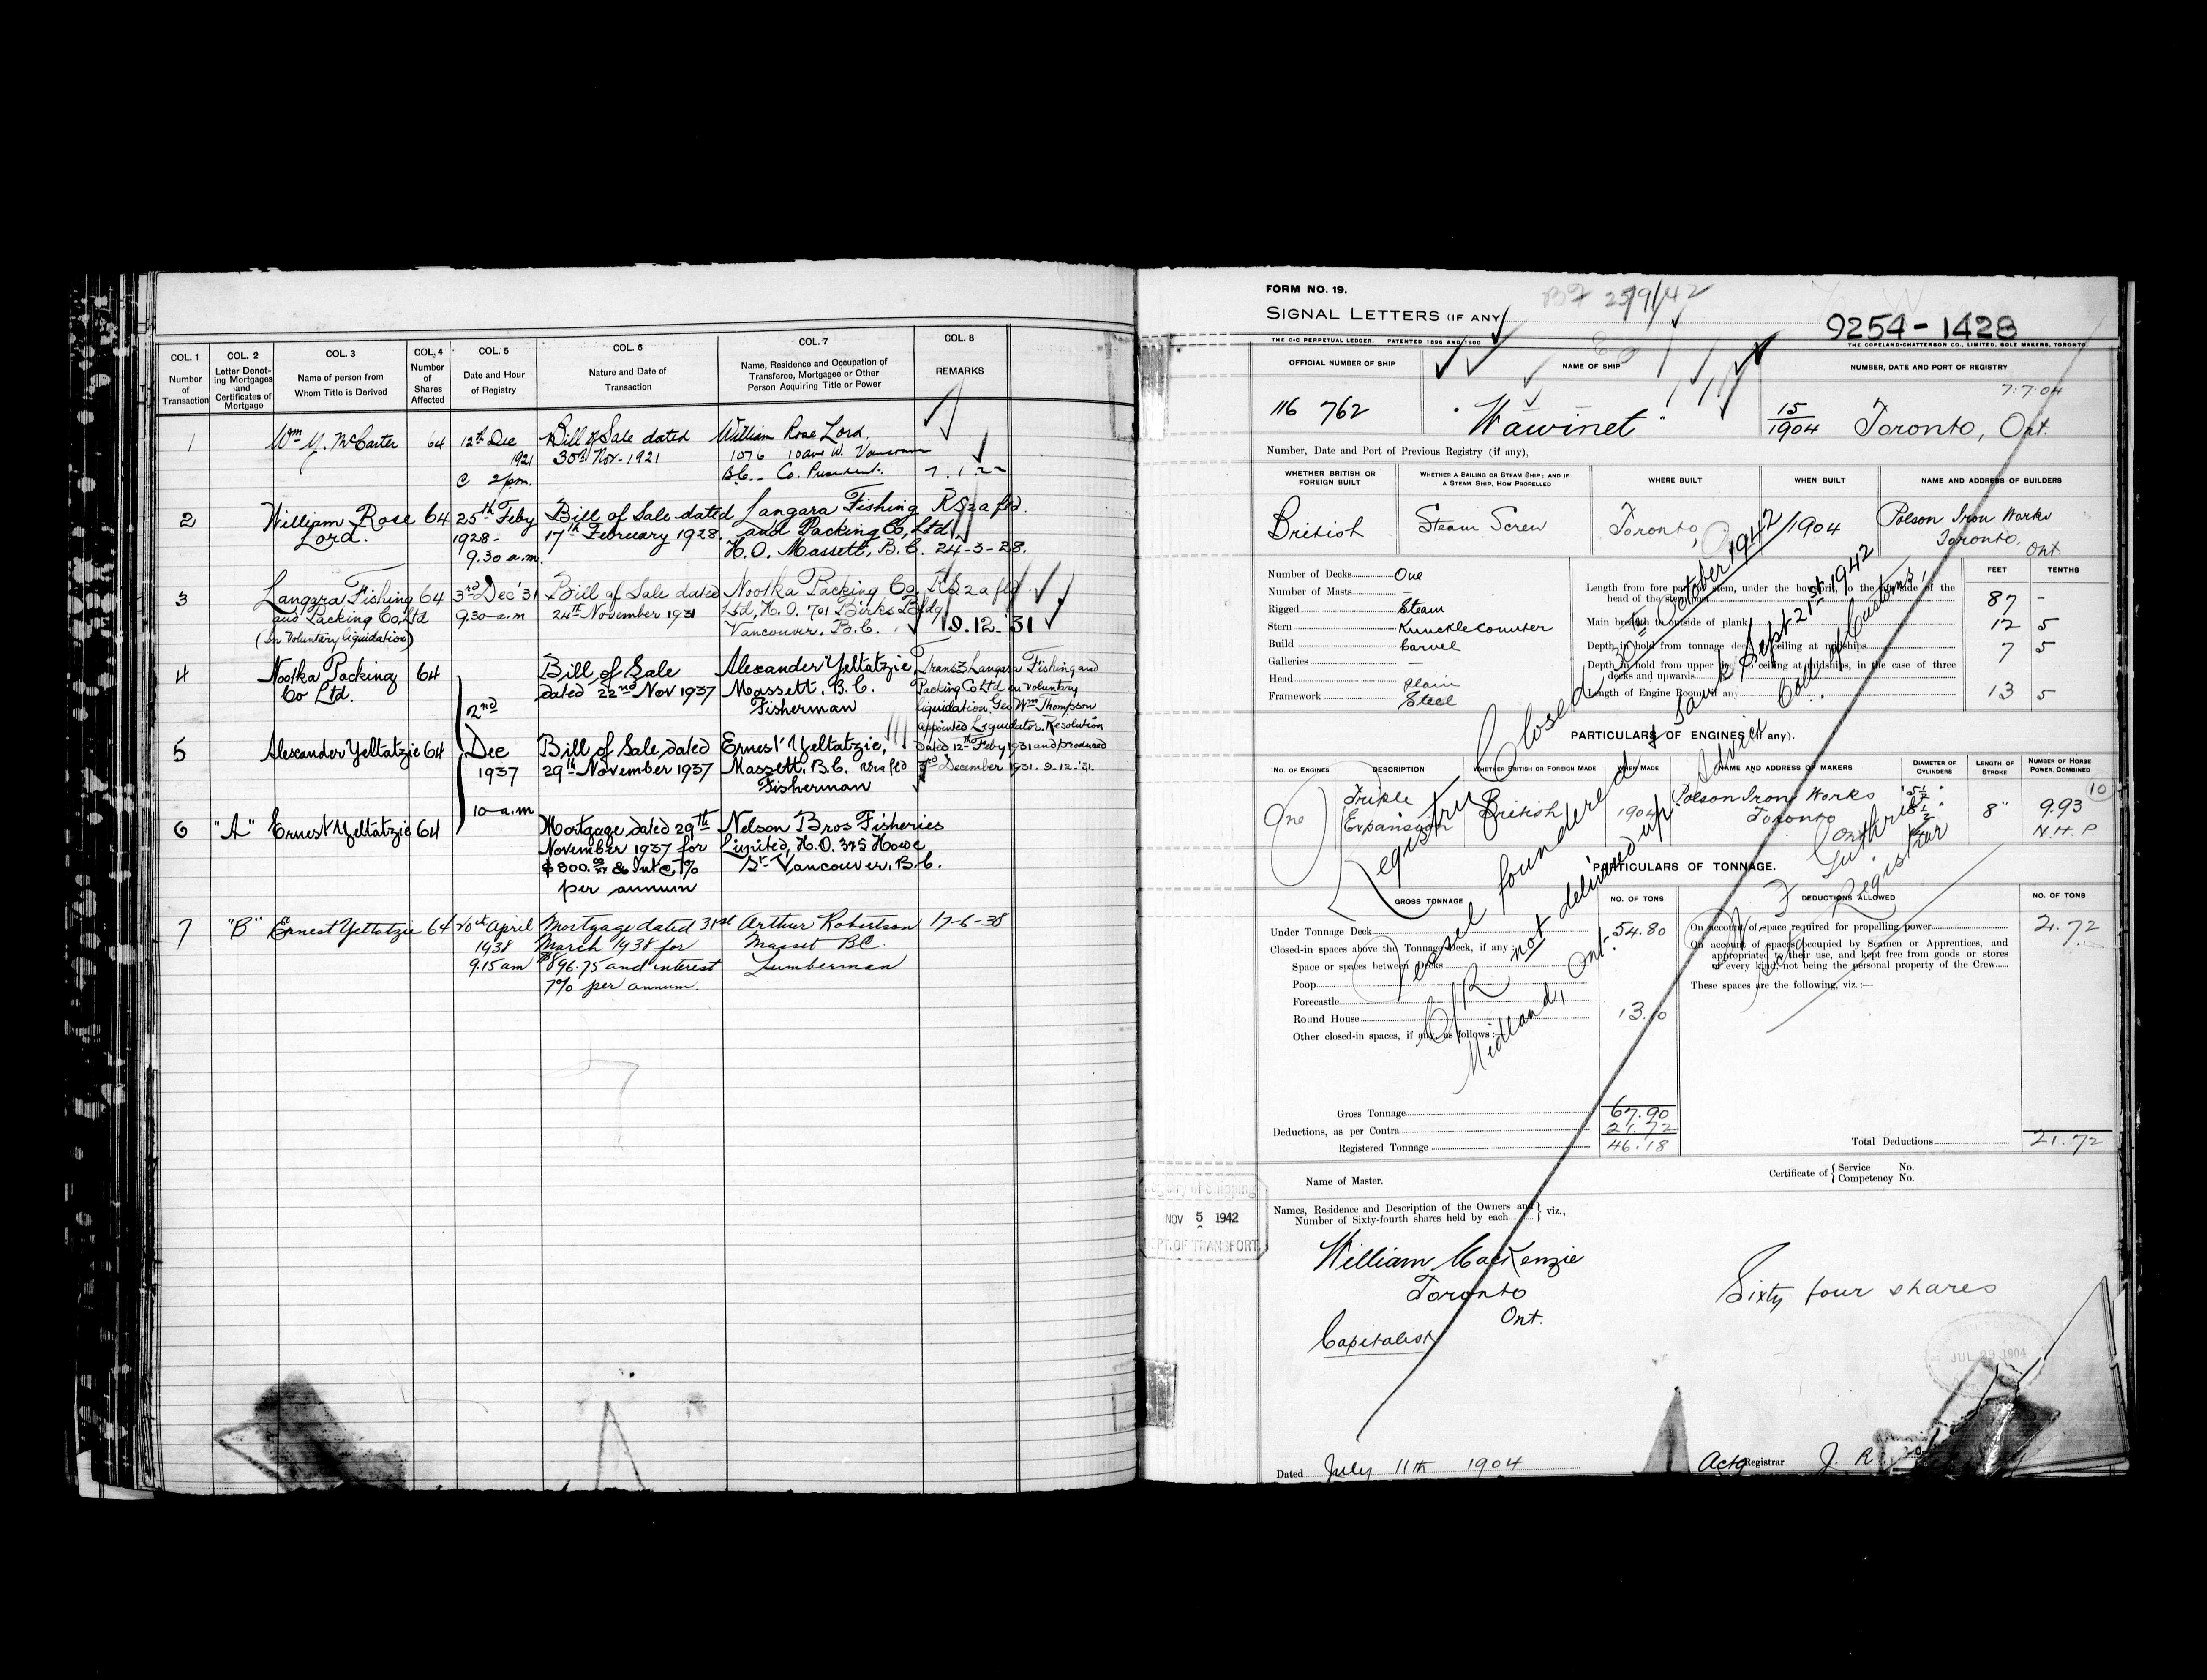 COL. 1
Number
of
Transaction
COL. 2
Letter Denot-
ing Mortgages
and
Certificates of
Mortgage
COL. 3
Name of person from
Whom Title is Derived
COL. 4
Number
of
Shares
Affected
COL. 5
Date and Hour
of Registry
COL. 6
Nature and Date of
Transaction
COL. 7
Name, Residence and Occupation of
Transferee, Mortgagee or Other
Person Acquiring Title or Power
COL. 8
REMARKS
1
Wm Y. McCarter
64
12th Dec
1921
@ 2 p.m.
Bill of Sale dated
30th Nov. 1921
William Rose Lord,
1076 10 Ave W. Vancouver
B.C. - Co. President.
7.1.22
2
William Rose
Lord.
64
25th Feby
1928-
9.30 a.m.
Bill of Sale dated
17th February 1928.
Langara Fishing
and Packing Co, Ltd
H.O. Massett, B.C.
24-3-28.
3
Langara Fishing
and Packing Co, Ltd
(In Voluntary liquidation)
64
3rd Dec '31
9.30 a.m
Bill of Sale dated
24th November 1931
Nootka Packing Co.
Ltd, H.O. 701 Birks Bldg
Vancouver, B.C.
9.12.31
4
Nootka Packing
Co Ltd.
64
2nd
Dec
1937
10 a.m
Bill of Sale
dated 22nd Nov 1937
Alexander Yeltatzie,
Massett, B.C.
Fisherman
Trans 3 Langara Fishing and
Packing Co Ltd in voluntary
liquidation. Geo Wm Thompson
appointed Liquidator. Resolution
dated 12th Feby 1931 and produced
3rd December 1931. 9-12-'31.
5
Alexander Yeltatzie
64
Bill of Sale dated
29th November 1937
Ernest Yeltatzie,
Massett, B.C.
Fisherman
6
"A"
Ernest Yeltatzie
64
Mortgage dated 29th
November 1937 for
$800.00 & Int @ 7%
per annum
Nelson Bros Fisheries
Limited, H.O. 325 Howe
St. Vancouver, B.C.
7
"B"
Ernest Yeltatzie
64
20th April
1938
9.15 am
Mortgage dated 31st
March 1938 for
$896.75 and interest
7% per annum.
Arthur Robertson
Masset BC.
Lumberman
17-6-38
FORM NO. 19.
25/9/42
SIGNAL LETTERS (IF ANY)
9254-1428
THE C-C PERPETUAL LEDGER. PATENTED 1896 AND 1900
THE COPELAND-CHATTERSON CO., LIMITED, SOLE MAKERS, TORONTO.
OFFICIAL NUMBER OF SHIP
NAME OF SHIP
NUMBER, DATE AND PORT OF REGISTRY
7.7.04
116 762
"Wawinet"
15
1904
Toronto, Ont.
Number, Date and Port of Previous Registry (if any),
WHETHER BRITISH OR
FOREIGN BUILT
WHETHER A SAILING OR STEAM SHIP; AND IF
A STEAM SHIP, HOW PROPELLED
WHERE BUILT
WHEN BUILT
NAME AND ADDRESS OF BUILDERS
British
Steam Screw
Toronto,
1904
Polson Iron Works
Toronto.
Ont
Number of Decks One
Number of Masts -
Rigged Steam
Stern Knuckle Counter
Build Carvel
Galleries -
Head plain
Framework Steel
FEET
TENTHS
Length from fore part of stem, under the bowsprit, to the aft side of the
head of the stern post 87 -
Main breadth to outside of plank 12 5
Depth in hold from tonnage deck to ceiling at midships 7 5
Depth in hold from upper deck to ceiling at midships, in the case of three
decks and upwards
Length of Engine Room, if any 13 5
PARTICULARS OF ENGINES (if any).
NO. OF ENGINES
DESCRIPTION
WHETHER BRITISH OR FOREIGN MADE
WHEN MADE
NAME AND ADDRESS OF MAKERS
DIAMETER OF
CYLINDERS
LENGTH OF
STROKE
NUMBER OF HORSE
POWER, COMBINED
One
Triple
Expansion
British
1904
Polson Iron Works
Toronto
Ont
8"
10
9.93
N.H.P.
Registry Closed 30th October 1942
Vessel foundered Sank Sept 21st 1942
C/R not delivered up. Advice Coll. of Customs,
Midland, Ont.
Guthrie
Registrar
PARTICULARS OF TONNAGE.
GROSS TONNAGE
NO. OF TONS
DEDUCTIONS ALLOWED
NO. OF TONS
Under Tonnage Deck 54.80
Closed-in spaces above the Tonnage Deck, if any
Space or spaces between Decks
Poop
Forecastle
Round House 13.10
Other closed-in spaces, if any, as follows:
On account of space required for propelling power 21.72
On account of spaces occupied by Seamen or Apprentices, and
appropriated to their use, and kept free from goods or stores
of every kind, not being the personal property of the Crew
These spaces are the following, viz.:—
Gross Tonnage 67.90
Deductions, as per Contra 21.72
Registered Tonnage 46.18
Total Deductions 21.72
Name of Master.
Certificate of { Service No.
Competency No.
Names, Residence and Description of the Owners and
Number of Sixty-fourth shares held by each } viz.,
Registry of Shipping
NOV 5 1942
DEPT. OF TRANSPORT
William MacKenzie
Toronto
Ont.
Capitalist
Sixty four shares
JUL 29 1904
Dated July 11th 1904
Actg Registrar J. R.